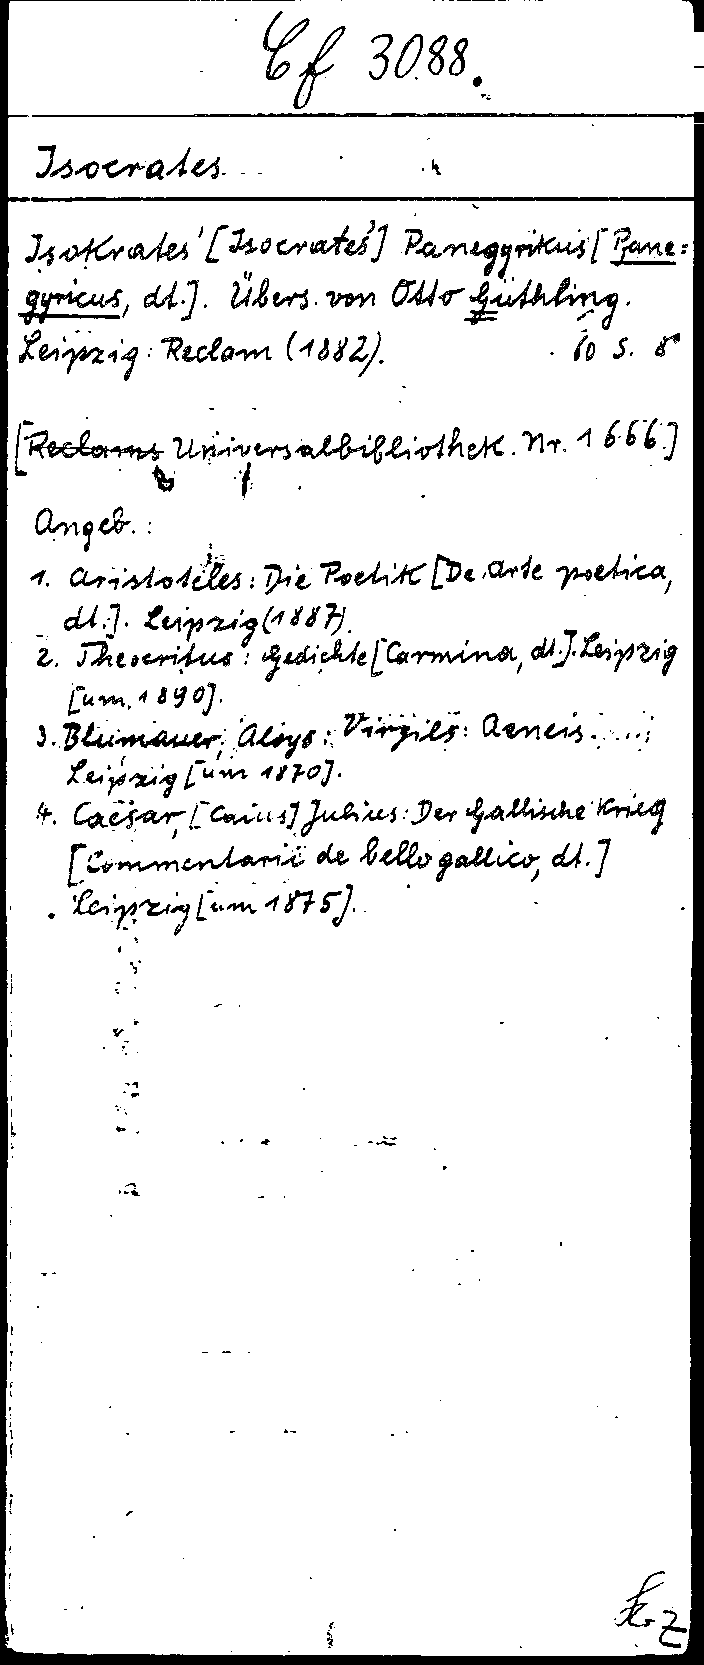 Cf 3088.
Isocrates
Isokrates' [Isocrates'] Panegyrikus [Pane=
gyricus, dt.]. Übers. von Otto Güthling.
Leipzig: Reclam (1882). 60 S. 8°
[Reclams Universalbibliothek. Nr. 1666.]
Angeb.:
1. Aristoteles: Die Poetik [De arte poetica,
dt.]. Leipzig (1887).
2. Theocritus: Gedichte [Carmina, dt.]. Leipzig
[um 1890].
3. Blumauer, Aloys: Virgils: Aeneis.
Leipzig [um 1870].
4. Caesar, [Caius] Julius: Der Gallische Krieg
[Commentarii de bello gallico, dt.]
Leipzig [um 1875].